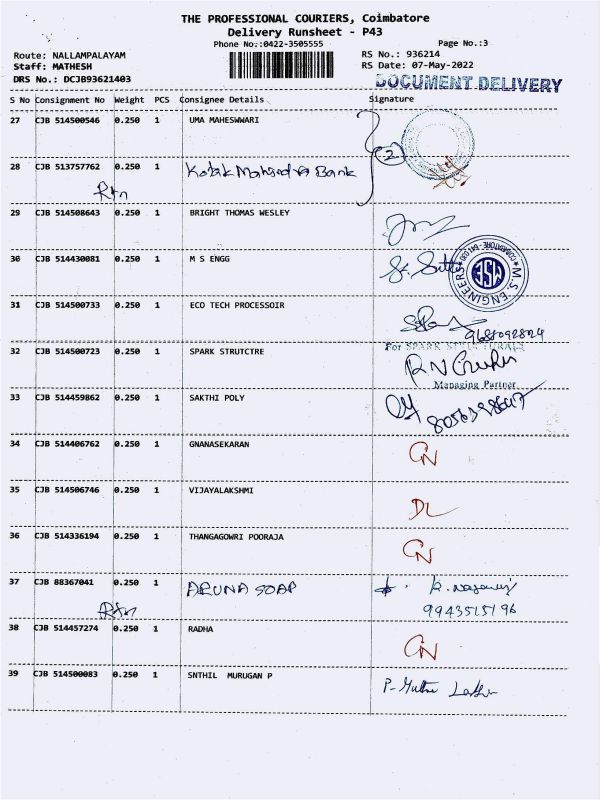 THE PROFESSIONAL COURIERS, Coimbatore
Delivery Runsheet - P43
Phone No.:0422-3505555
Page No.:3
Route: NALLAMPALAYAM
RS No.: 936214
Staff: MATHESH
RS Date: 07-May-2022
DRS No.: DCJB93621403
DOCUMENT DELIVERY
S No Consignment No Weight PCS Consignee Details Signature
27 CJB 514500546 0.250 1 UMA MAHESWWARI
2
28 CJB 513757762 0.250 1 Kotak Mahindra Bank
Rtn
29 CJB 514508643 0.250 1 BRIGHT THOMAS WESLEY
30 CJB 514430081 0.250 1 M S ENGG
M.S. ENGINEERS
COIMBATORE
MSE
31 CJB 514500733 0.250 1 ECO TECH PROCESSOIR
9688092824
For SPARK STRUCTURALS
32 CJB 514500723 0.250 1 SPARK STRUTCTRE
Managing Partner
33 CJB 514459862 0.250 1 SAKTHI POLY
34 CJB 514406762 0.250 1 GNANASEKARAN CN
35 CJB 514506746 0.250 1 VIJAYALAKSHMI DL
36 CJB 514336194 0.250 1 THANGAGOWRI POORAJA CN
37 CJB 88367041 0.250 1 ARUNA SOAP
Rtn
9943515196
38 CJB 514457274 0.250 1 RADHA CN
39 CJB 514500083 0.250 1 SNTHIL MURUGAN P